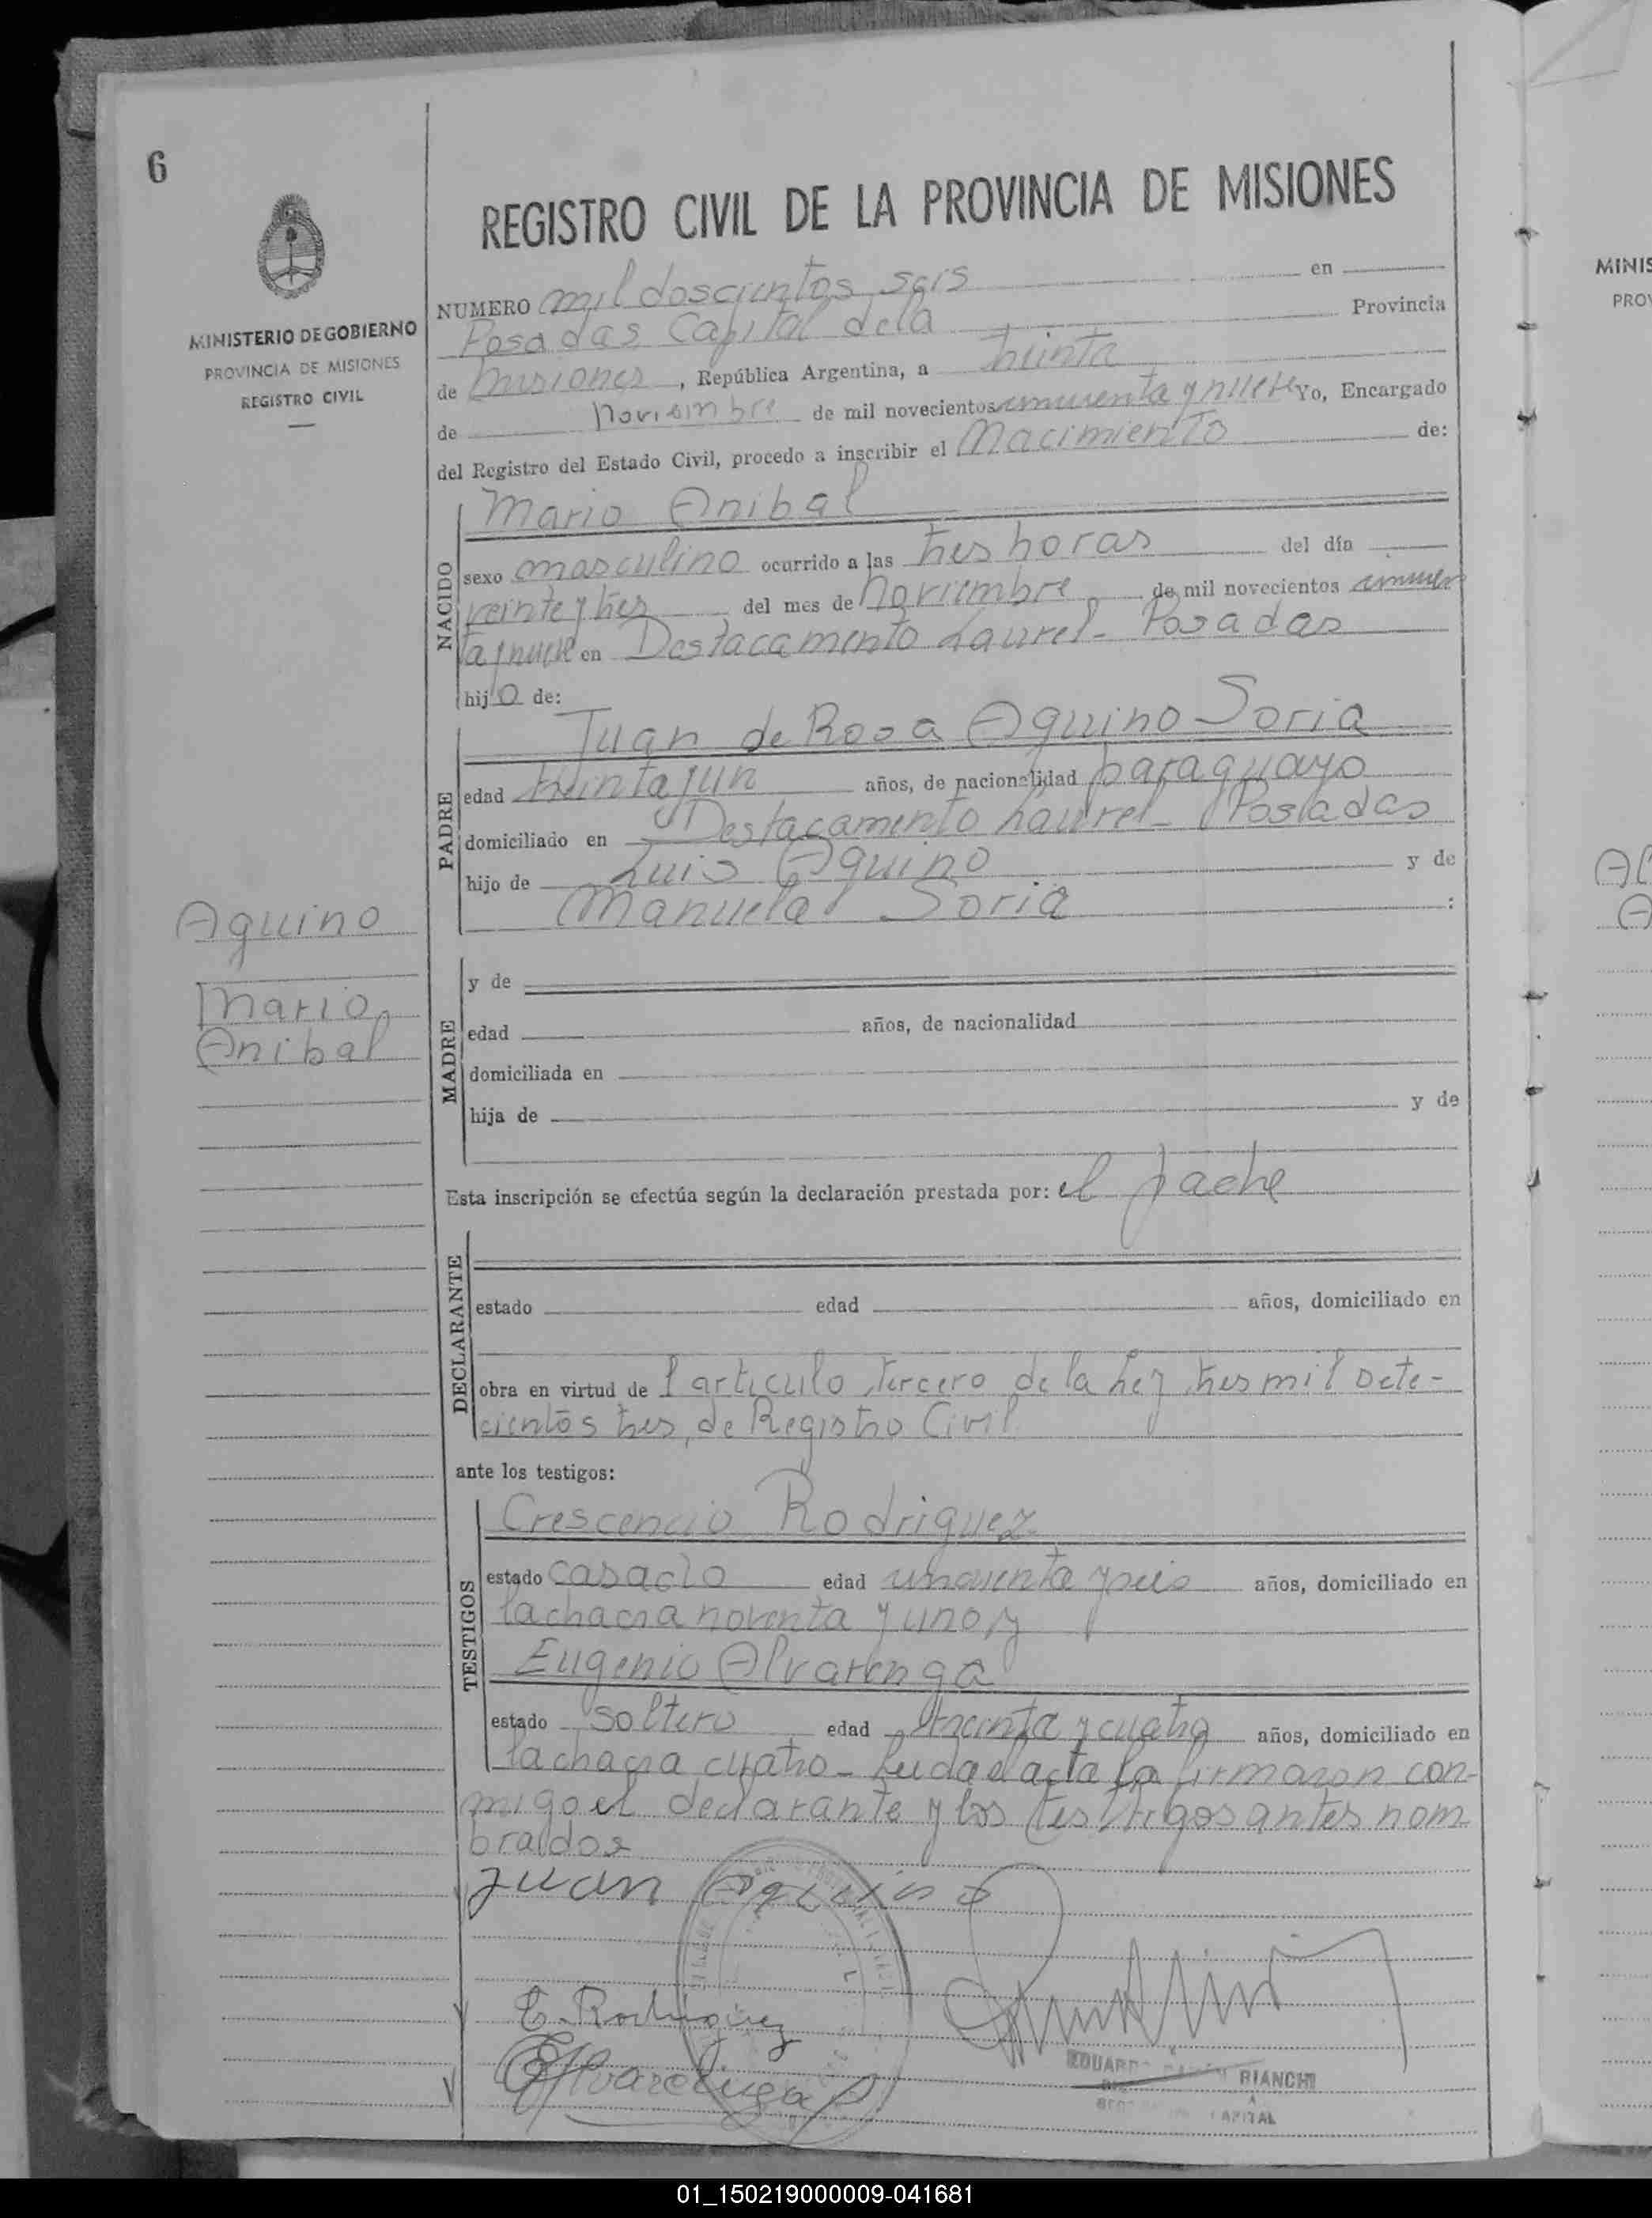 6
REGISTRO CIVIL DE LA PROVINCIA DE MISIONES
MINISTERIO DE GOBIERNO
PROVINCIA DE MISIONES
REGISTRO CIVIL
NUMERO mil doscientos seis en
Posadas Capital de la Provincia
de Misiones, República Argentina, a treinta
de Noviembre de mil novecientos cincuenta y nueve Yo, Encargado
del Registro del Estado Civil, procedo a inscribir el Nacimiento de:
NACIDO
Mario Anibal
sexo masculino ocurrido a las tres horas del día
veinte y tres del mes de Noviembre de mil novecientos cincuen
ta y nueve en Destacamento Laurel - Posadas
hijo de:
PADRE
Juan de Rosa Aquino Soria
edad treinta y un años, de nacionalidad paraguayo
domiciliado en Destacamento Laurel - Posadas
hijo de Luis Aquino y de
Manuela Soria :
Aquino
Mario
Anibal
MADRE
y de
edad años, de nacionalidad
domiciliada en
hija de y de
Esta inscripción se efectúa según la declaración prestada por: el padre
DECLARANTE
estado edad años, domiciliado en
obra en virtud de l articulo tercero de la Ley tres mil sete-
cientos tres, de Registro Civil
ante los testigos:
TESTIGOS
Crescencio Rodriguez
estado casado edad cincuenta y seis años, domiciliado en
la chacra noventa y uno y
Eugenio Alvarenga
estado soltero edad treinta y cuatro años, domiciliado en
la chacra cuatro - Leida el acta la firmaron con-
migo el declarante y los testigos antes nom
brados
Juan Aquino
E. Rodriguez
EAlvarenga
EDUARDO BIANCHI
CAPITAL
MINIS
PRO
Al
A
01_150219000009-041681